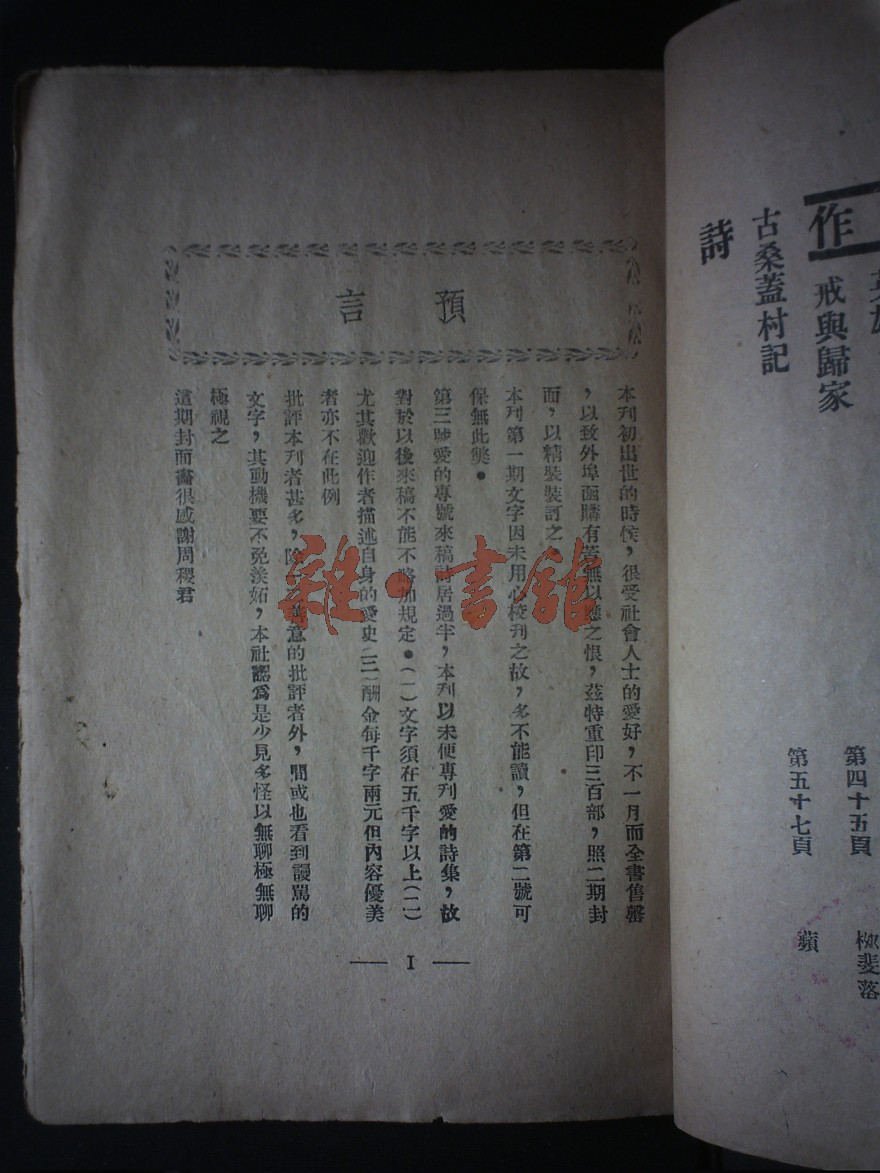 預言
本刊初出世的時候，很受社會人士的愛好，不一月而全書售罄
，以致外埠函購有者無以應之恨，茲特重印三百部，照二期封
面，以精裝裝訂之。
本刊第一期文字因未用心校刊之故，多不能讀，但在第二號可
保無此獘。
第三號愛的專號來稿詩居過半，本刊以未便專刊愛的詩集，故
對於以後來稿不能不略加規定。（一）文字須在五千字以上（二）
尤其歡迎作者描述自身的愛史（三）酬金每千字兩元但內容優美
者亦不在此例
批評本刊者甚多，除善意的批評者外，間或也看到謾罵的
文字，其動機要不免羨妬，本社認爲是少見多怪以無聊極無聊
極視之
這期封面畫很感謝周稷君
— I —
作
戒與歸家
第四十五頁
柳斐落
古桑蓋村記
第五十七頁
蘋
詩
雜·書館